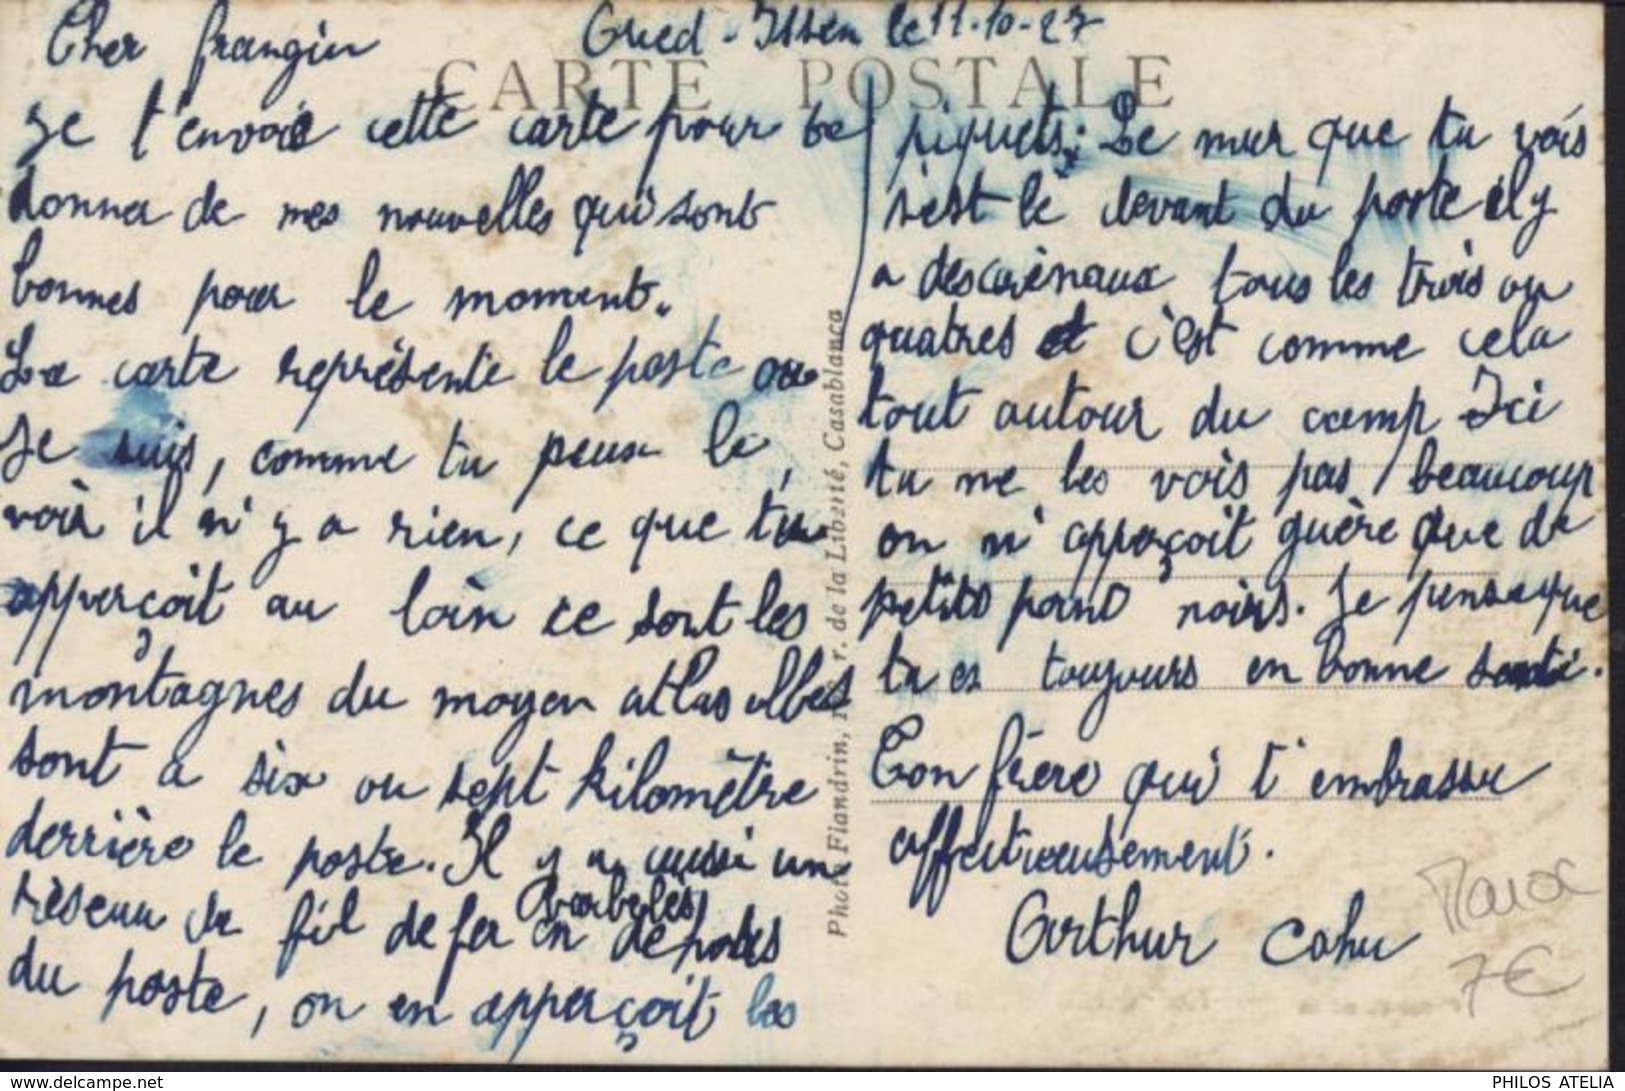 Cher frangin
Oued-Issen le 11-10-27
CARTE POSTALE
Je t'envoie cette carte pour te
donner de mes nouvelles qui sont
bonnes pour le moment.
La carte représente le poste ou
je suis, comme tu peux le,
voir il n'y a rien, ce que tu
apperçoit au loin ce sont les
montagnes du moyen atlas elles
sont a six ou sept kilomètre
derrière le poste. Il y a aussi un
réseau de fil de fer barbelés en dehors
du poste, on en apperçoit les
piquets. Le mur que tu vois
s'est le devant du poste il y
a des crénaux tous les trois ou
quatres et c'est comme cela
tout autour du camp Ici
tu ne les vois pas beaucoup
on n'apperçoit guère que de
petits point noirs. Je pense que
tu es toujours en bonne santé.
Ton frère qui t'embrasse
affectueusement.
Arthur Cahu
Maroc
7€
Photo Flandrin, r. de la Liberté, Casablanca
www.delcampe.net
PHILOS ATELIA